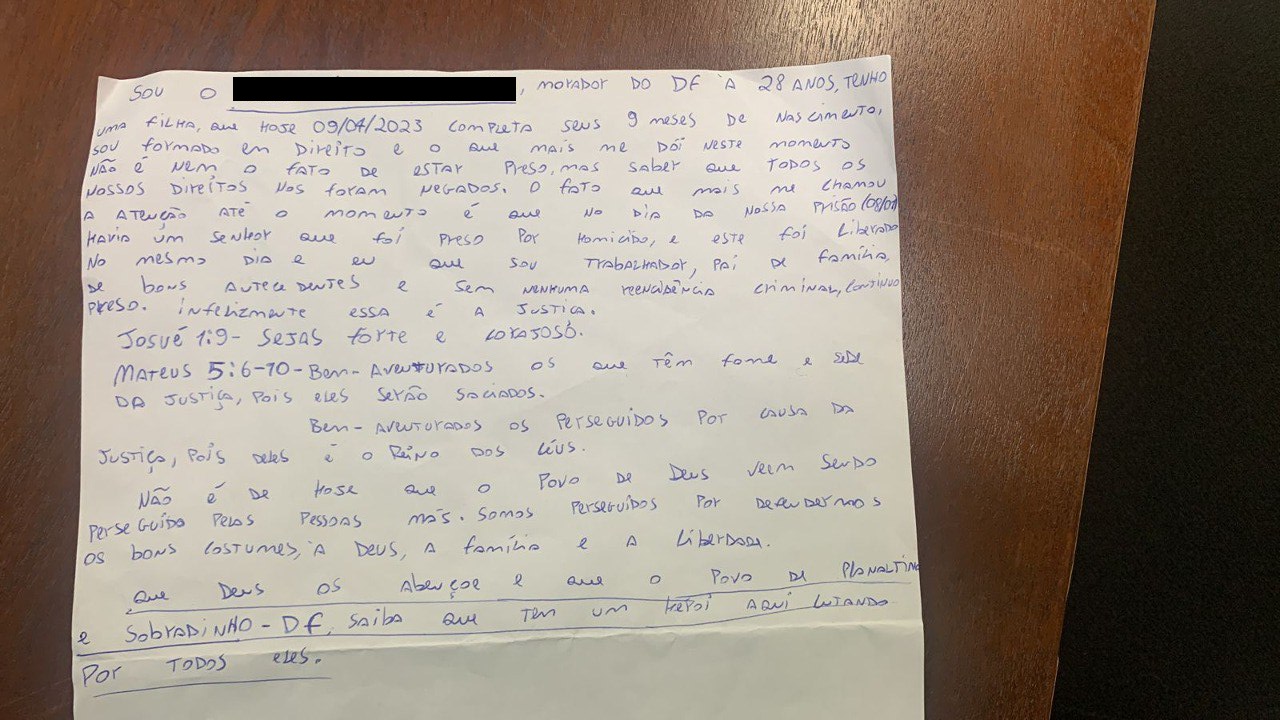 SOU O , MORADOR DO DF À 28 ANOS, TENHO
UMA FILHA, QUE HOJE 09/04/2023 COMPLETA SEUS 9 MESES DE NASCIMENTO,
SOU FORMADO EM DIREITO E O QUE MAIS ME DÓI NESTE MOMENTO
NÃO É NEM O FATO DE ESTAR PRESO, MAS SABER QUE TODOS OS
NOSSOS DIREITOS NOS FORAM NEGADOS. O FATO QUE MAIS ME CHAMOU
A ATENÇÃO ATÉ O MOMENTO É QUE NO DIA DA NOSSA PRISÃO (08/01)
HAVIA UM SENHOR QUE FOI PRESO POR HOMICÍDIO, E ESTE FOI LIBERADO
NO MESMO DIA E EU QUE SOU TRABALHADOR, PAI DE FAMÍLIA,
DE BONS ANTECEDENTES E SEM NENHUMA REENCIDÊNCIA CRIMINAL, CONTINUO
PRESO. INFELIZMENTE ESSA É A JUSTIÇA.
JOSUÉ 1:9- SEJAS FORTE E CORAJOSO.
MATEUS 5:6-10- BEM-AVENTURADOS OS QUE TÊM FOME E SEDE
DA JUSTIÇA, POIS ELES SERÃO SACIADOS.
BEM-AVENTURADOS OS PERSEGUIDOS POR CAUSA DA
JUSTIÇA, POIS DELES É O REINO DOS CÉUS.
NÃO É DE HOJE QUE O POVO DE DEUS VEEM SENDO
PERSEGUIDO PELAS PESSOAS MÁS. SOMOS PERSEGUIDOS POR DEFENDERMOS
OS BONS COSTUMES, A DEUS, A FAMÍLIA E A LIBERDADE.
QUE DEUS OS ABENÇOE E QUE O POVO DE PLANALTINA
E SOBRADINHO-DF, SAIBA QUE TEM UM HERÓI AQUI LUTANDO
POR TODOS ELES.